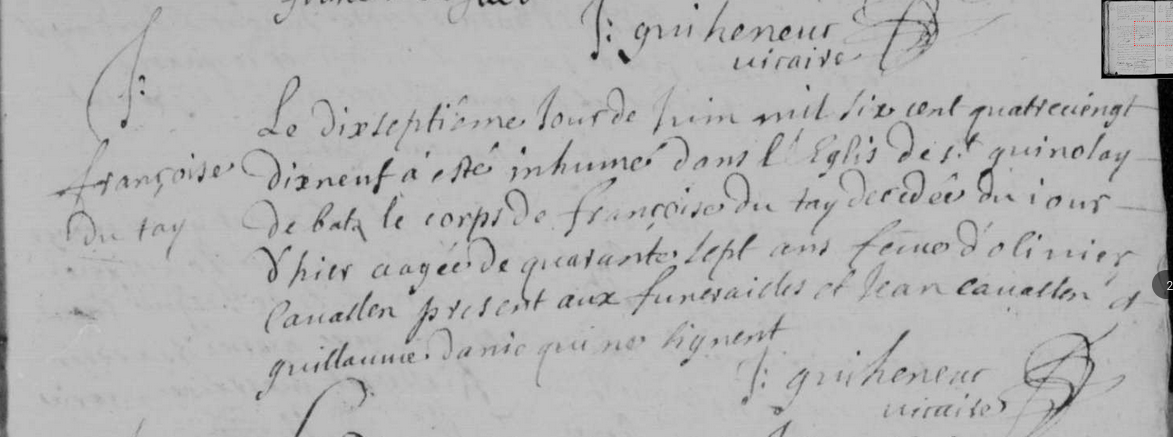 J: guiheneuc
vicaire
J:
françoise
du tay
Le dixseptiéme Jour de Juin mil six cent quatrevingt
dixneuf a esté inhumé dans l'Eglis de st guinolay
de batz le corps de françoise du tay decedée du iour
d'hier aagée de quarante sept ans feme d'oliuier
Cauallen present aux funerailles et Jean Cauallen et
guillaume danic qui ne signent
J: guiheneuc
vicaire